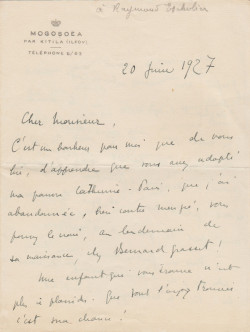 à Raymond Escholier
MOGOSOËA
PAR KITILA (ILFOV)
TELEPHONE 6/93
20 Juin 1927
Cher Monsieur,
C'est un bonheur pour moi que de vous
lire, d'apprendre que vous avez adopté
ma pauvre Catherine-Paris, que j'ai
abandonnée, bon contre mon gré, vous
pouvez le croire, au lendemain de
sa naissance, chez Bernard Grasset!
Une enfant que vous trouvez n'est
plus à plaindre. Que vous l'ayez trouvée
c'est ma chance!